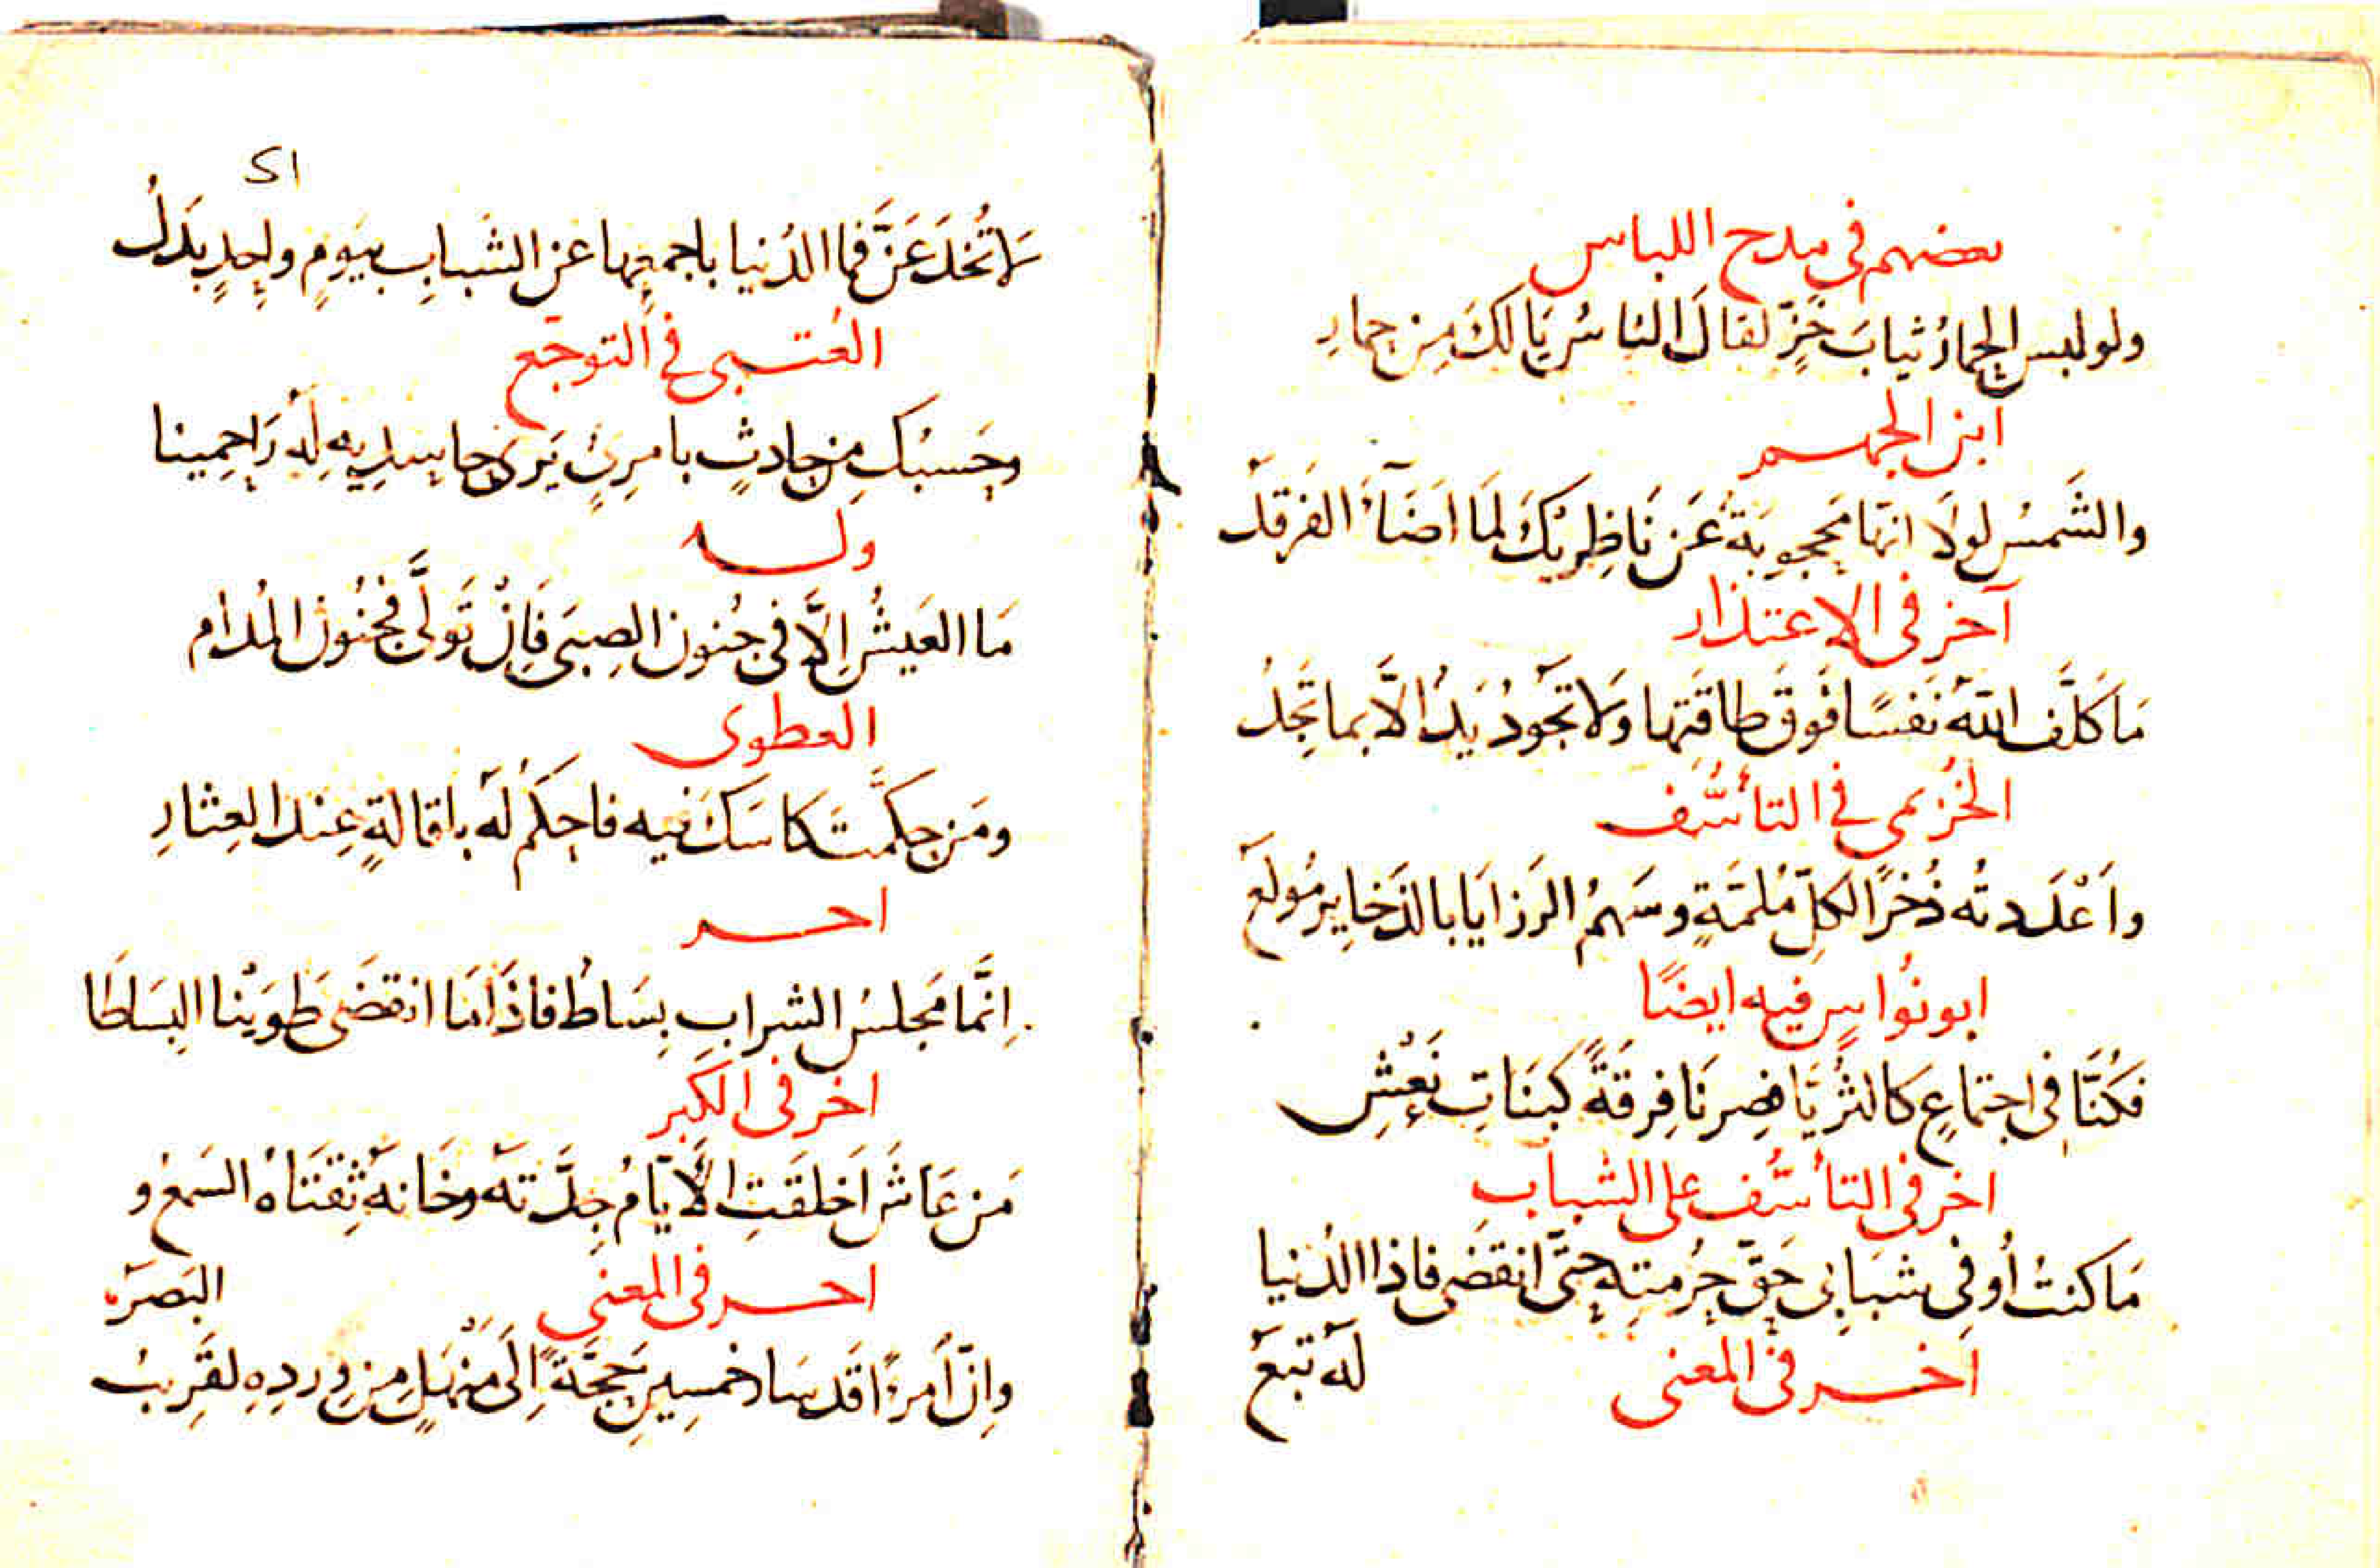 بعضهم في مدح اللباس
ولو لبس الحمارُ ثيابَ خَزٍّ لقالَ الناسُ يَا لكَ مِن حمارِ
ابن الجهم
والشَمسُ لولَا انهّا مَحجوبَةُ عَن نَاظِرِيْكَ لمَا اضَآءَ الفَرقدُ
آخر في الاعتذار
مَا كَلَّف اللهُ نَفسًا فَوقَ طاقَتِها وَلا تَجُودُ يَدُ الّا بما تَجِدُ
الخُزيمي في التأسُّف
واَعْدَدتُه ذُخرًا لكلِّ مُلمّةٍ وسَهمُ الرَزايَا بالذَخايرِ مُولَعُ
ابو نُواسٍ فيه ايضًا
فكُنَّا في اجتماعٍ كالثُريَّا فصِرنَا فِرقَةً كبنَاتِ نَعْشِ
اخر في التأسُّف على الشباب
مَا كنتُ أُوفي شبَابي حَقّ حُرمتِهِ حتَّى انقضَى فاذا الدُنيا
لهُ تبَعُ
اخر في المعنى
21
لا تُخدَعَنَّ فما الدُنيا باجمعِها عن الشبابِ بيَومٍ واحِدٍ بدَلُ
العُتبي في التوجّع
وحَسبُكِ من حادثٍ بامرِئٍ يَرى حاسدِيهِ لهُ رَاحِمِينا
وله
مَا العَيشُ اِلَّا في جُنونِ الصِبَى فَاِنْ تَولَّى فجُنُونُ المُدامِ
العطوى
ومَن حكَّمتَ كاسَكَ فيه فاحكُم لهُ باقالةٍ عِندَ العِثارِ
اخر
اِنَّما مَجلسُ الشرابِ بِسَاطُ فاذَا مَا انقضَى طَوَيْنا البِسَاطَا
اخر في الكِبَر
مَن عَاشَ اَخلقَتِ الاَيّامُ جِدَّتهُ وخَانهُ ثِقتَاهُ السَمعُ و
البَصَرُ
اخر في المعنى
وانّ اَمرءًا قَد سَار خمسِينَ حَجّةً اِلَى مَنْهلٍ مِن وِردِهِ لقَرِيبُ